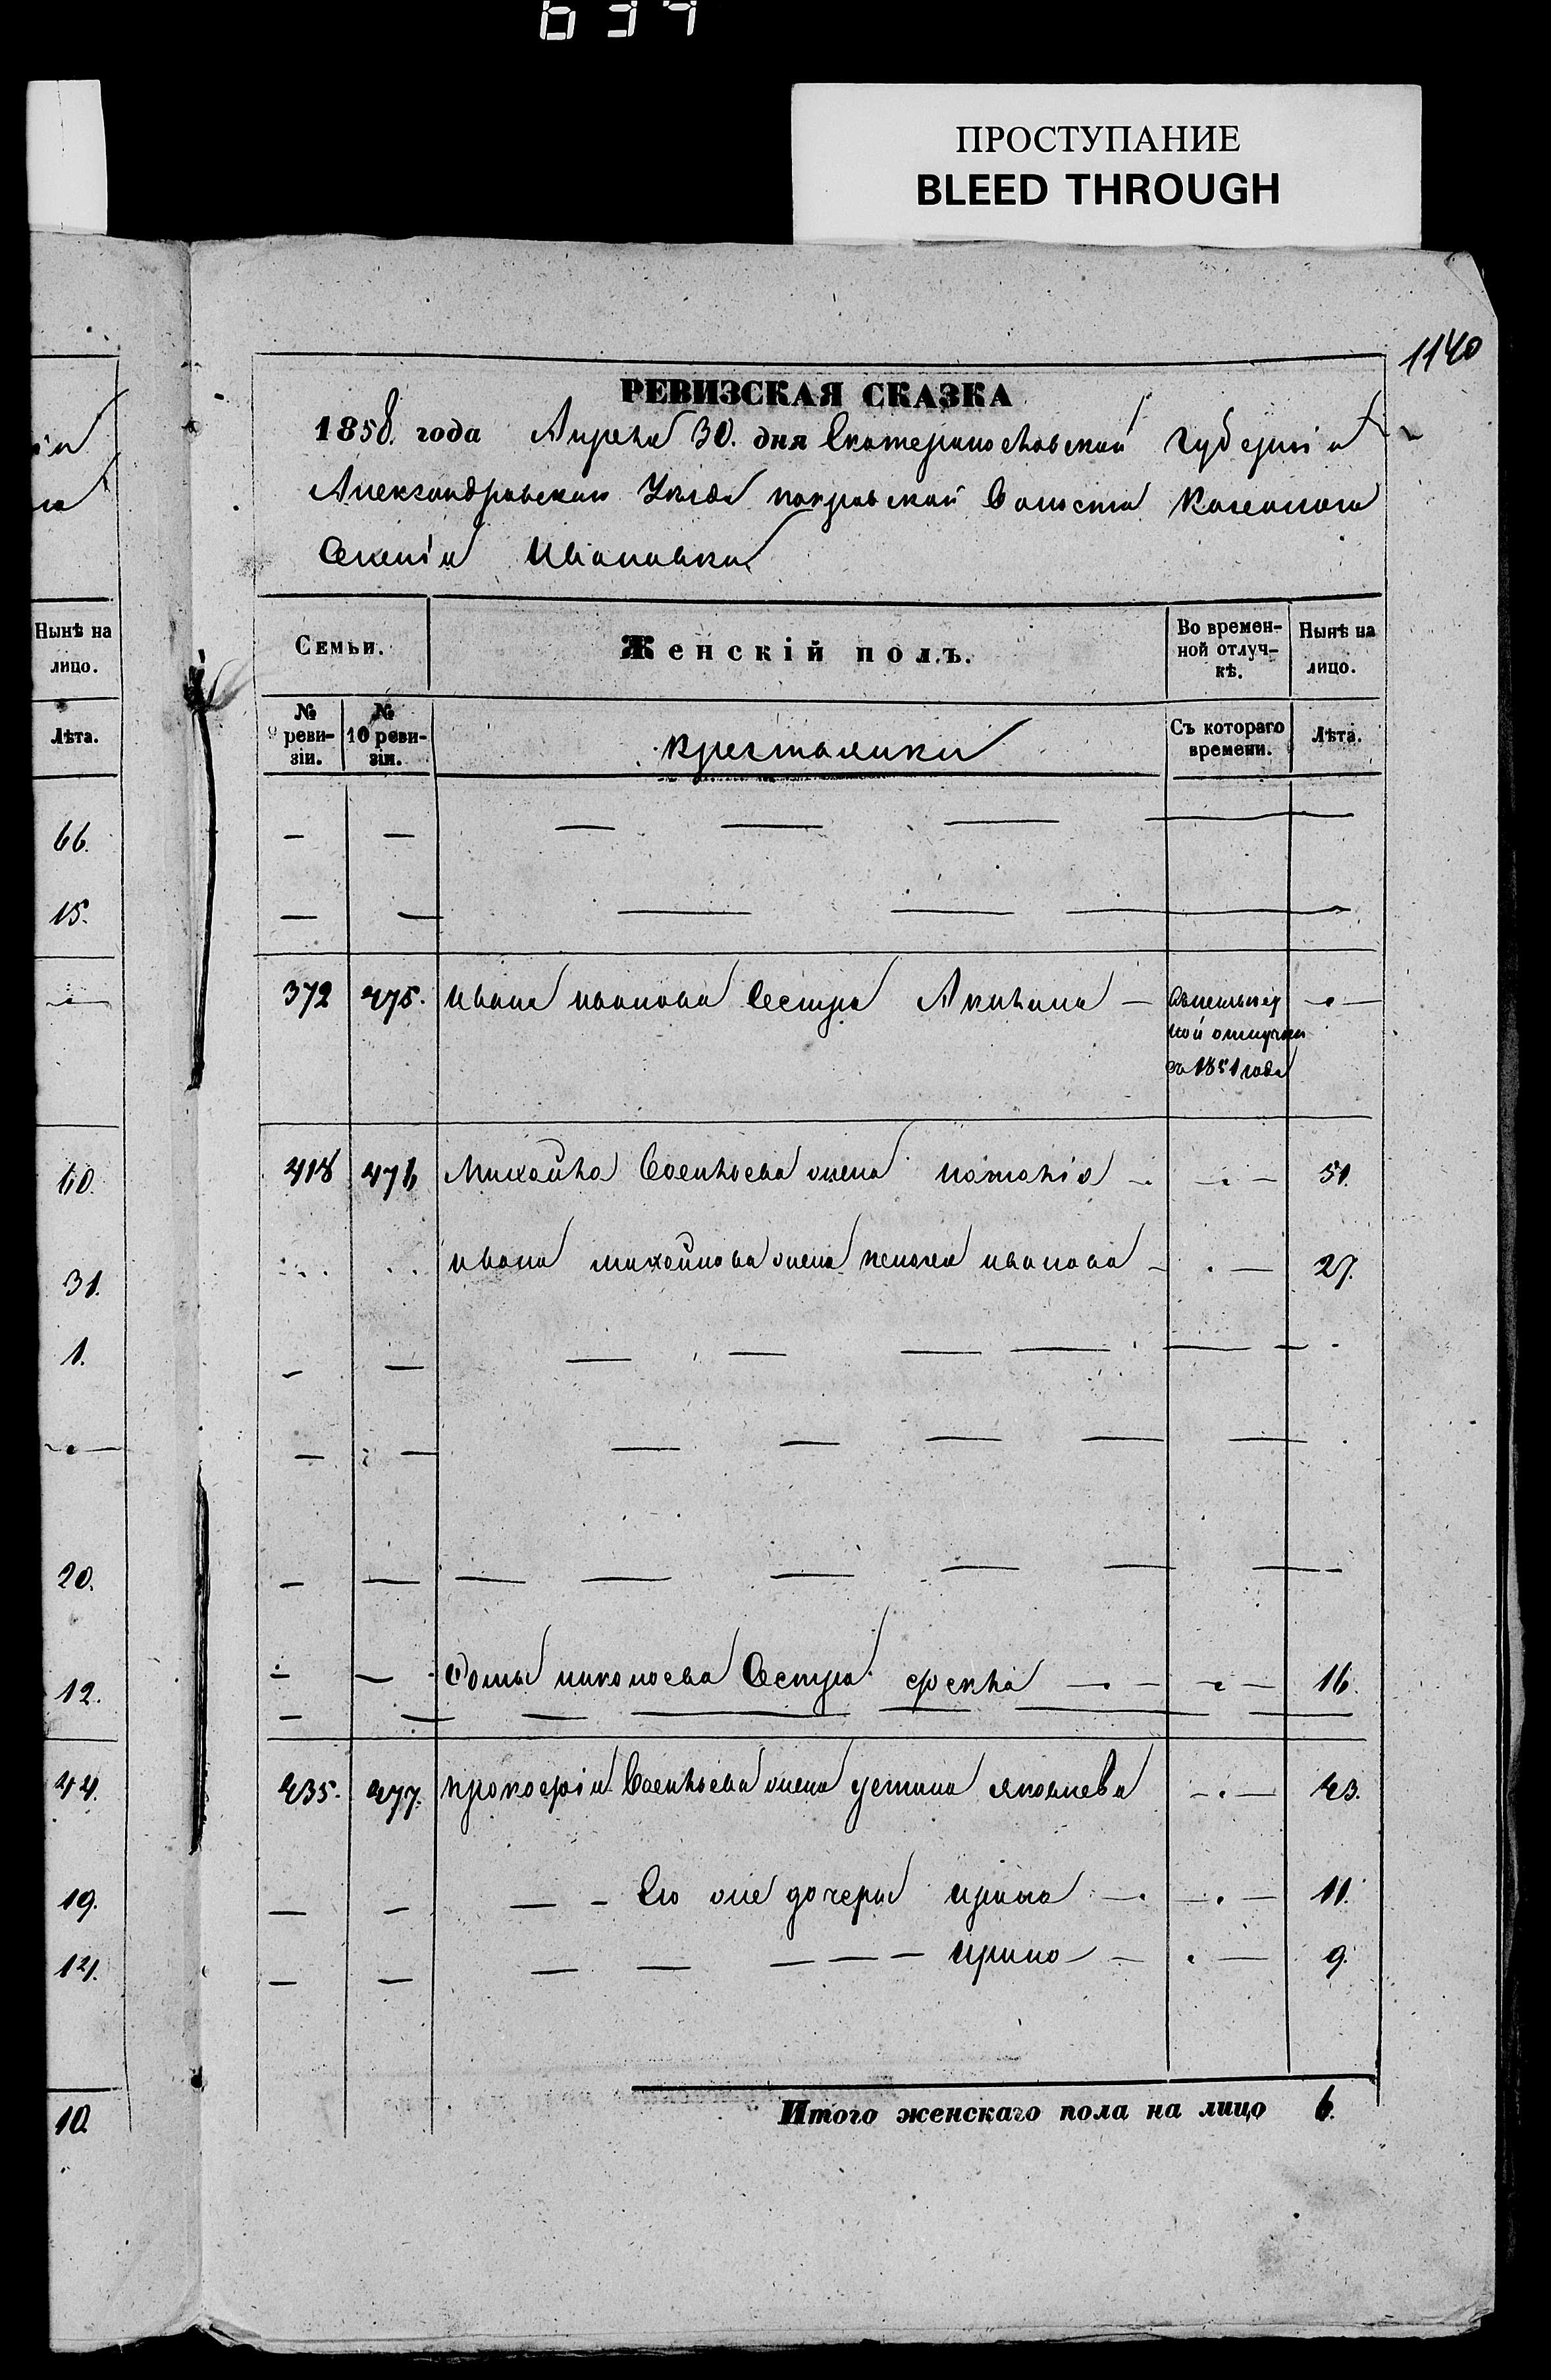 637
ПРОСТУПАНИЕ
BLEED THROUGH
1140
РЕВИЗСКАЯ СКАЗКА
1858. года Апреля 30. дня Екатеринославской губерніи
Александровскаго Уезда покровской Волости Казеннаго
Селенія Ивановки
Нынѣ на лицо.
Лѣта.
66.
15.
60.
31.
1.
20.
12.
44.
19.
14.
10.
Семьи. Женскій полъ. Во времен-ной отлуч-кѣ. Нынѣ на лицо.
№ 9 реви-зіи. № 10 реви-зіи. крестьянки Съ котораго времени. Лѣта.
— — — — — — —
— — — — — — —
372 475. Ивана иванова Сестра Акилина —
ной отлучки
съ 1851 года
418 476 Михайла Савельева жена наталія — — 51.
ивана михайлова жена пелагея иванова — — 27.
— — — — — — — — —
— — — — — — —
— — — — — — — —
— — Фомы николаева Сестра фекла — — 16.
435. 477. прокофія Савельева жена устина яковлева — 43.
— — — — Его же дочери ирина — — 11.
— — — — — — — ирина — — 9.
Итого женскаго пола на лицо 6.